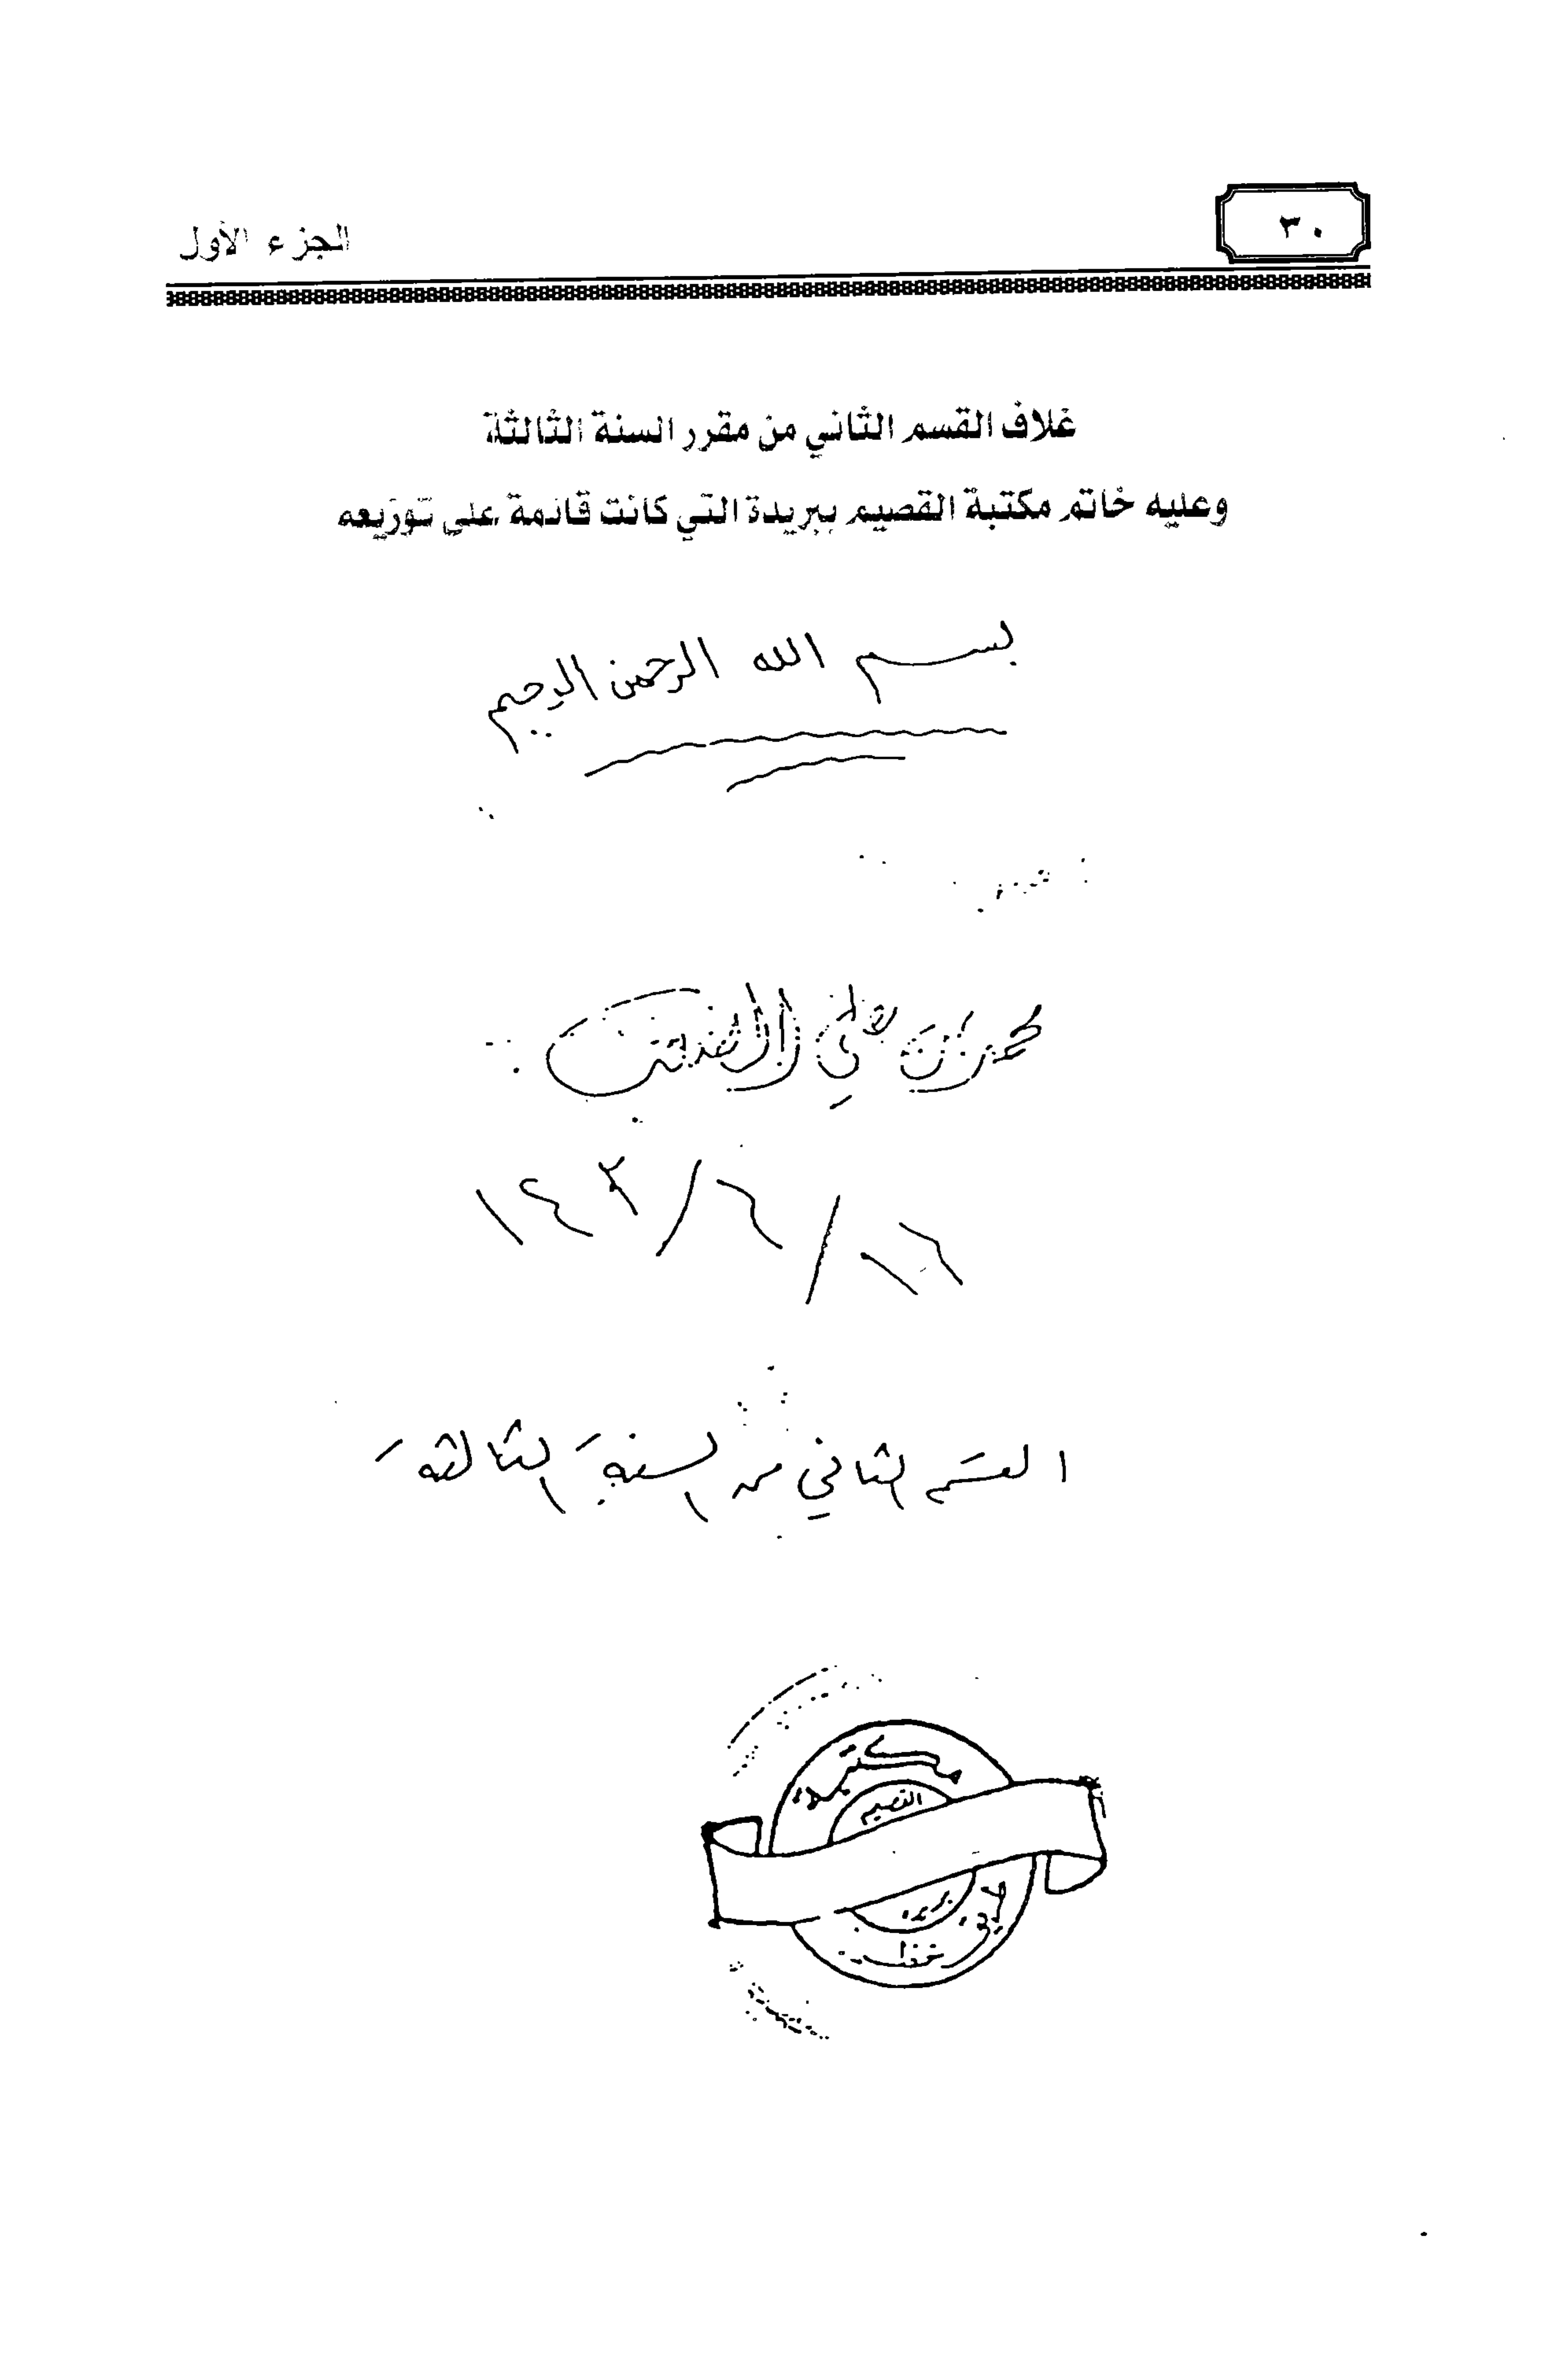 ٣٠
الجزء الأول
غلاف القسم الثاني من مقرر السنة الثالثة
وعليه خاتم مكتبة القصيم ببريدة التي كانت قائمة على توزيعه
بسم الله الرحمن الرحيم
علي
١٦/٦/١٤٢
القسم الثاني من السنة الثالثة
مكتبة
القصيم
بريده